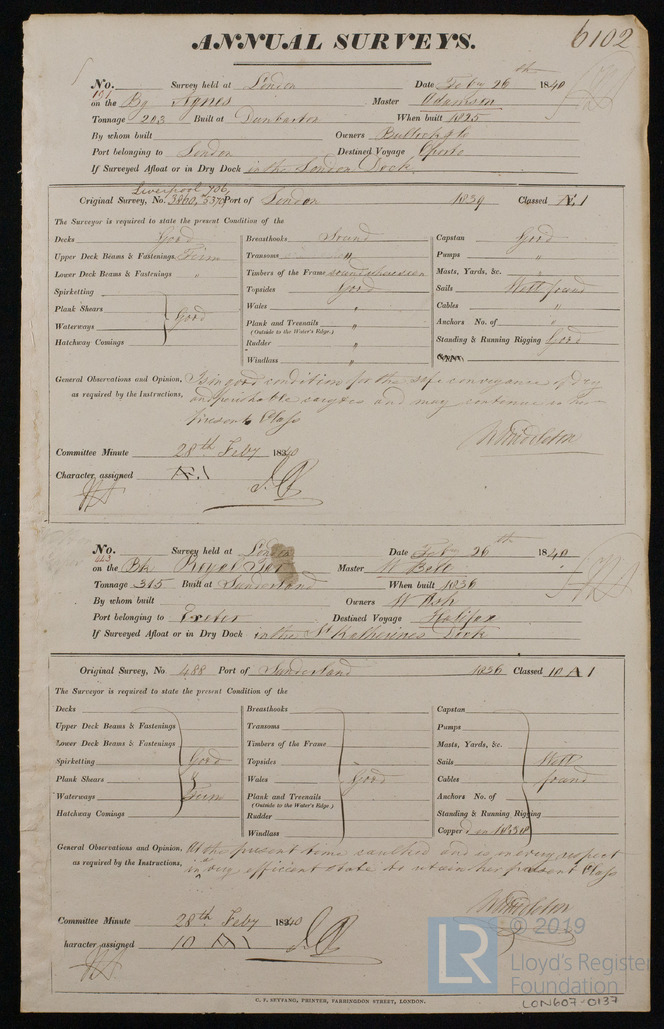 ANNUAL SURVEYS. 6102
No. 191 Survey held at London Date Feby 26th 1840
on the Bg Agnes Master Adamson
Tonnage 203 Built at Dunbarton When built 1825
By whom built Owners Bullock & Co
Port belonging to London Destined Voyage Oporto
If Surveyed Afloat or in Dry Dock in the London Dock.
Liverpool 706,
Original Survey, No. 3860, 5370 Port of London 1839 Classed Æ 1
The Surveyor is required to state the present Condition of the
Decks Good Breasthooks Sound Capstan Good
Upper Deck Beams & Fastenings Firm Transoms " Pumps "
Lower Deck Beams & Fastenings " Timbers of the Frame Masts, Yards, &c. "
Spirketting Topsides Good Sails Well found
Plank Shears Good Wales " Cables "
Waterways Plank and Treenails " Anchors No. of "
(Outside to the Water's Edge.)
Hatchway Comings Rudder " Standing & Running Rigging Good
Windlass "
General Observations and Opinion, Is in good condition for the safe conveyance of dry
as required by the Instructions, and perishable cargoes and may continue in her
Present Class
W Middleton
Committee Minute 28th Feby 1840
Character assigned Æ 1
No. 443 Survey held at London Date Feby 26th 1840
on the Bk Royal Tar Master W Bell
Tonnage 315 Built at Sunderland When built 1836
By whom built Owners W Ash
Port belonging to Exeter Destined Voyage Halifax
If Surveyed Afloat or in Dry Dock in the St Katherines Dock
Original Survey, No. 488 Port of Sunderland 1836 Classed 10 A 1
The Surveyor is required to state the present Condition of the
Decks Breasthooks Capstan
Upper Deck Beams & Fastenings Transoms Pumps
Lower Deck Beams & Fastenings Timbers of the Frame Masts, Yards, &c.
Spirketting Good Topsides Sails Well
Plank Shears & Wales Good Cables found
Waterways Firm Plank and Treenails Anchors No. of
(Outside to the Water's Edge.)
Hatchway Comings Rudder Standing & Running Rigging
Windlass Coppered in 1838
General Observations and Opinion, At the present time and is in every respect
as required by the Instructions, in a very efficient state to retain her present Class
W Middleton
Committee Minute 28th Feby 1840
haracter assigned 10 A 1
C. F. SEYFANG, PRINTER, FARRINGDON STREET, LONDON.
LR © 2019
Lloyd's Register
Foundation
LON607-0137